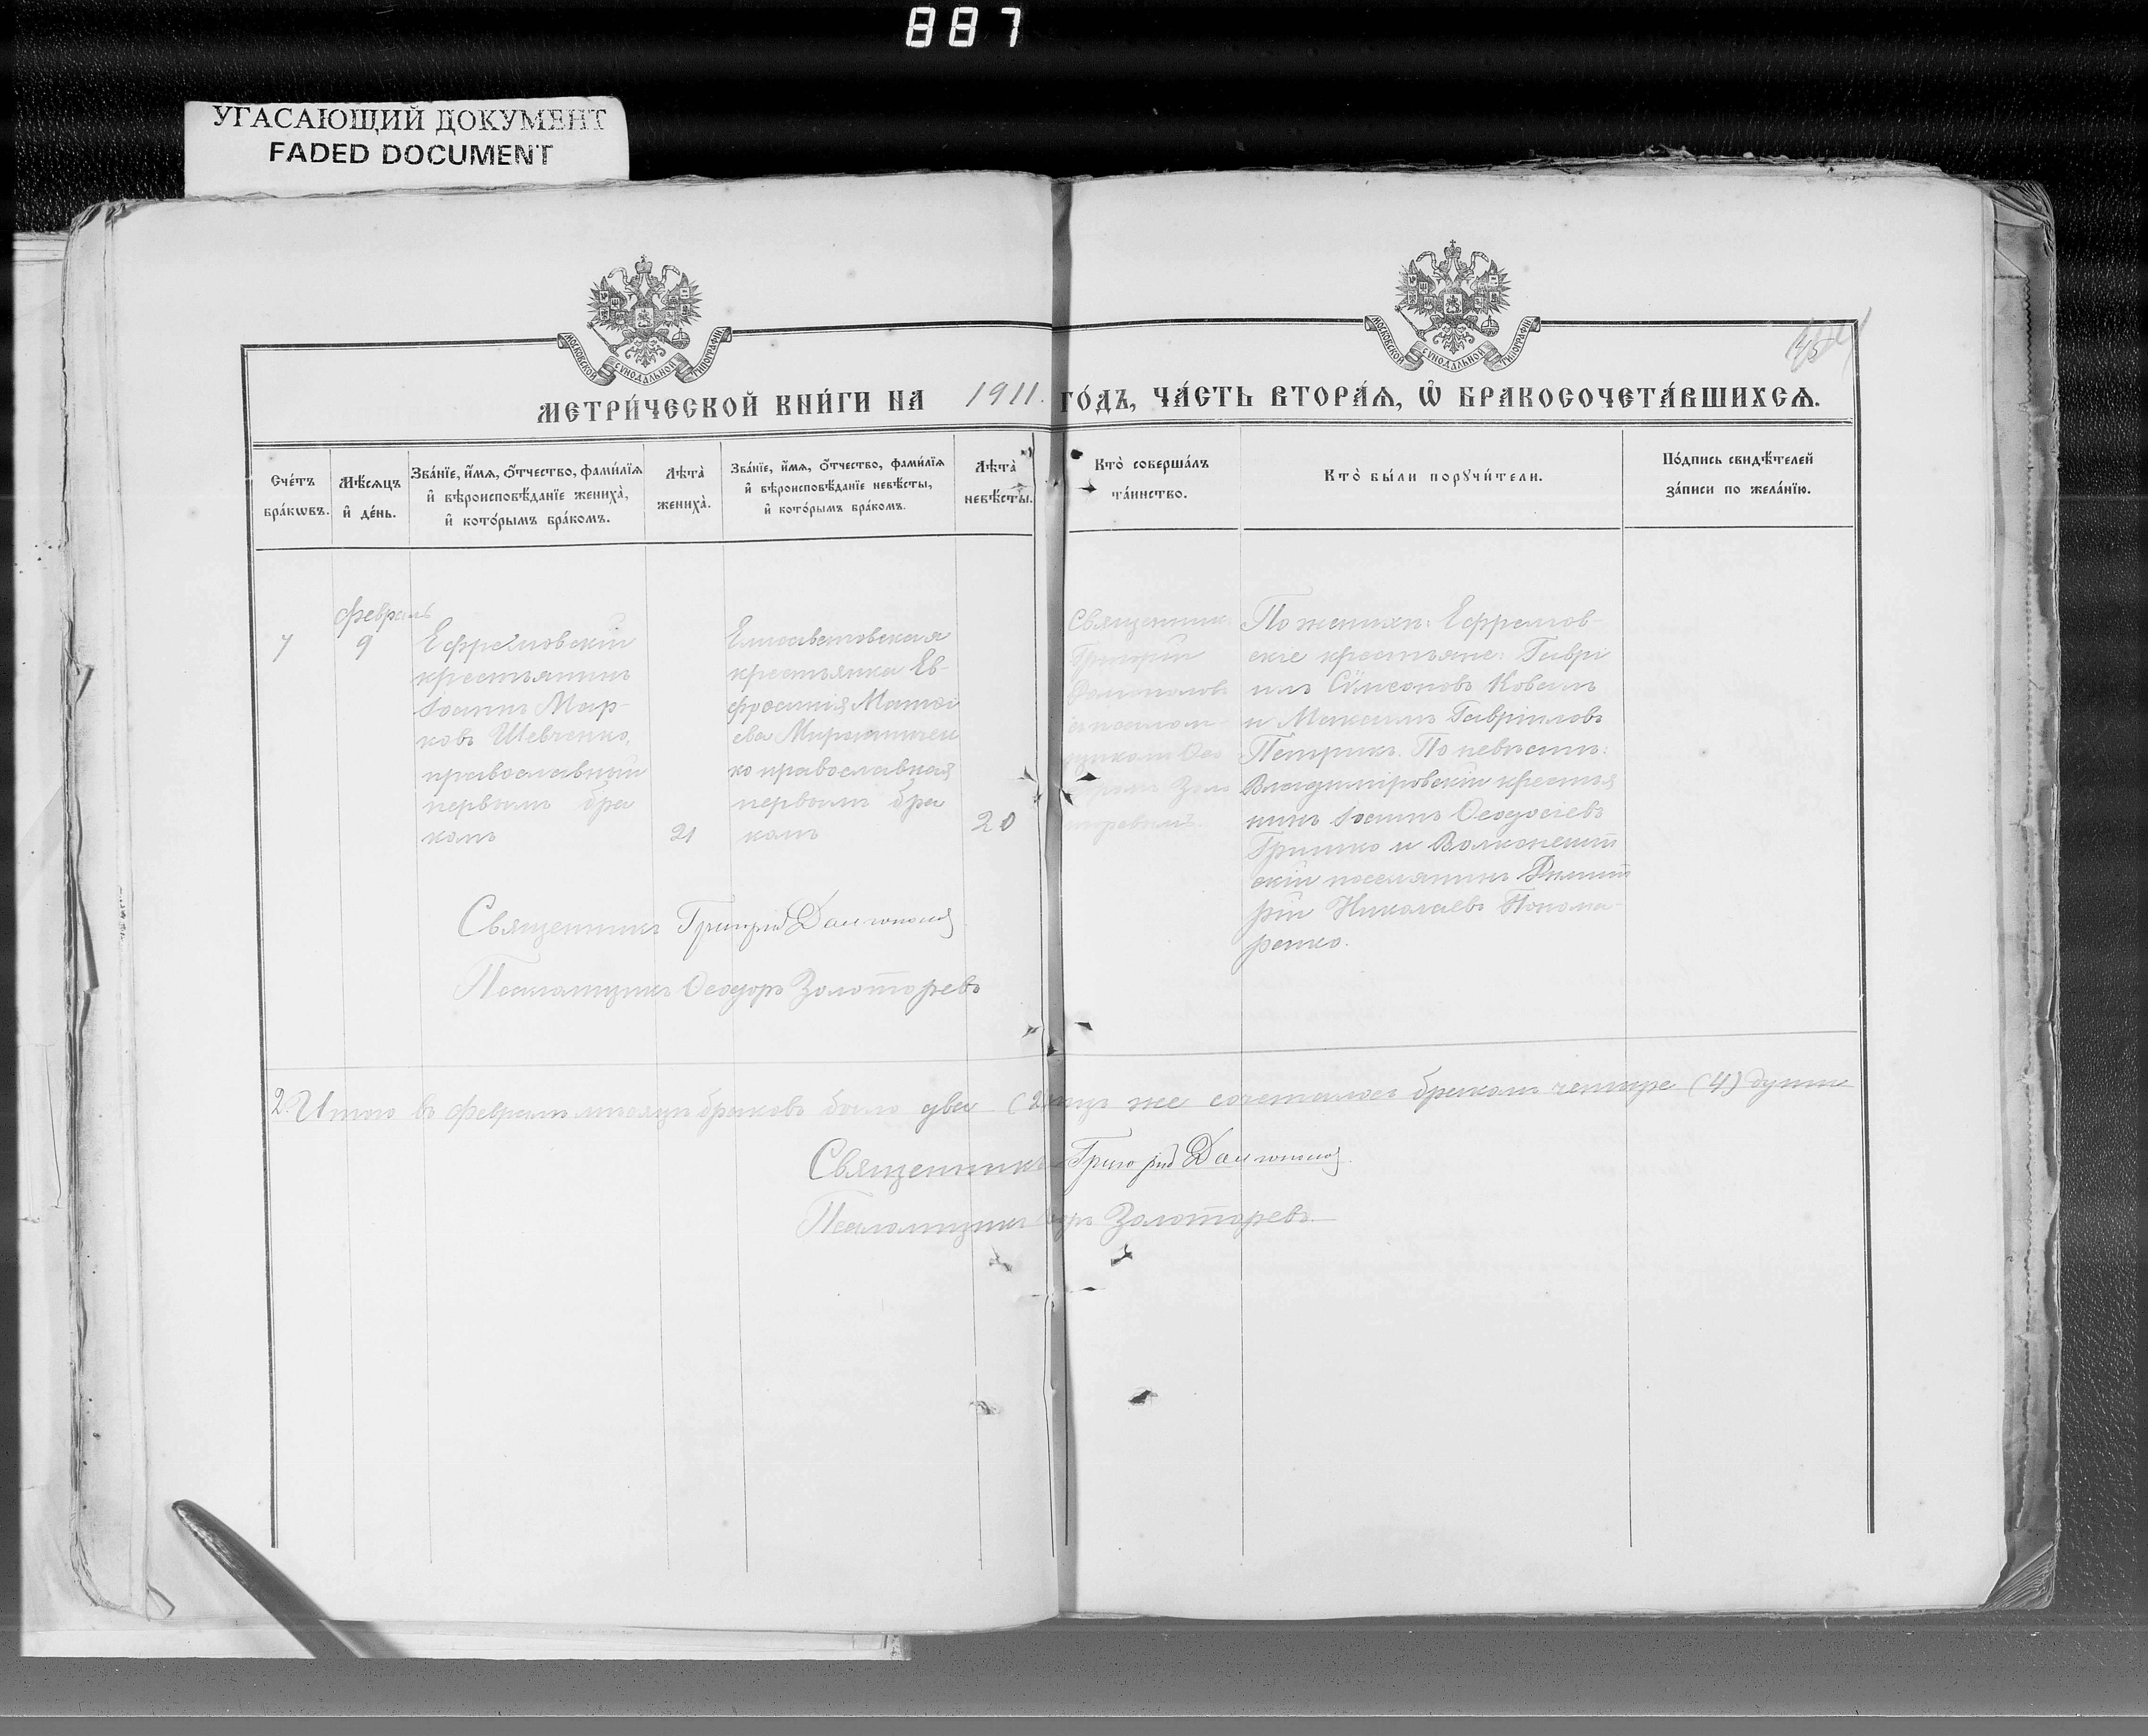 887
УГАСАЮЩИЙ ДОКУМЕНТ
FADED DOCUMENT
МОСКОВСКОЙ СѴНОДАЛЬНОЙ ТИПОГРАФІИ
МОСКОВСКОЙ СѴНОДАЛЬНОЙ ТИПОГРАФІИ
45
МЕТРИ́ЧЕСКОЙ КНИ́ГИ НА 1911. ГО́ДЪ, ЧА́СТЬ ВТОРА́Ѧ, Ѡ҆ БРАКОСОЧЕТА́ВШИХСѦ.
Сче́тъ
бра́кѡвъ.
Мѣ́сѧцъ
и҆ де́нь.
Зва́нїе, и҆́мѧ, ѻ҆́тчество, фами́лїѧ
и҆ вѣроисповѣ́данїе жениха̀,
и҆ кото́рымъ бра́комъ.
Лѣта̀
жениха̀.
Зва́нїе, и҆́мѧ, ѻ҆́тчество, фами́лїѧ
и҆ вѣроисповѣ́данїе невѣ́сты,
и҆ кото́рымъ бра́комъ.
Лѣта̀
невѣ́сты.
Кто̀ соверша́лъ
та́инство.
Кто̀ бы́ли порꙋчи́тели.
По́дпись свидѣ́телей
за́писи по жела́нїю.
7
февраль
9
Ефремовскій
крестьянинъ
Іоаннъ Мар-
ковъ Шевченко,
православный
первымъ бра
комъ
21
Елисаветовская
крестьянка Ев-
фросинія Матѳі
ева Мирошничен
ко православная
первымъ бра
комъ
20
Священникъ
Григорій
псалом-
щикомъ Ѳео
доромъ Золо
торевымъ.
По женихѣ: Ефремов-
скіе крестьяне: Гаврі
илъ Сѵмеоновъ Коваль
и Максимъ Гавріиловъ
Петрикъ. По невѣстѣ:
Владимировскій крестья
нинъ Іоаннъ Ѳеодосіевъ
Гришко и Волконешт
скій поселянинъ Димит
рій Николаевъ Понома-
ренко.
Священникъ Григорій
Псаломщикъ Ѳеодоръ Золоторевъ
2. Итого въ февралѣ мѣсяцѣ браковъ было два (2) лицъ же сочеталось бракомъ четыре (4) души
Священникъ Григорій
Псаломщикъ Ѳеодоръ Золоторевъ